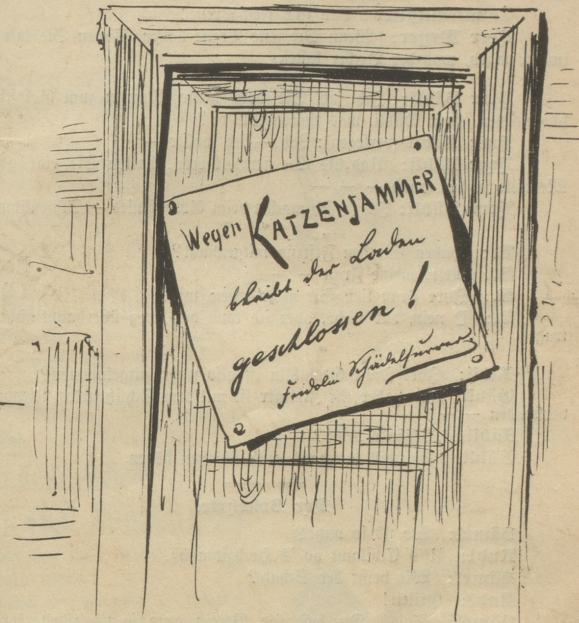 Wegen KATZENJAMMER
bleibt der Laden
geschlossen!
Fridolin Schädelsurrer